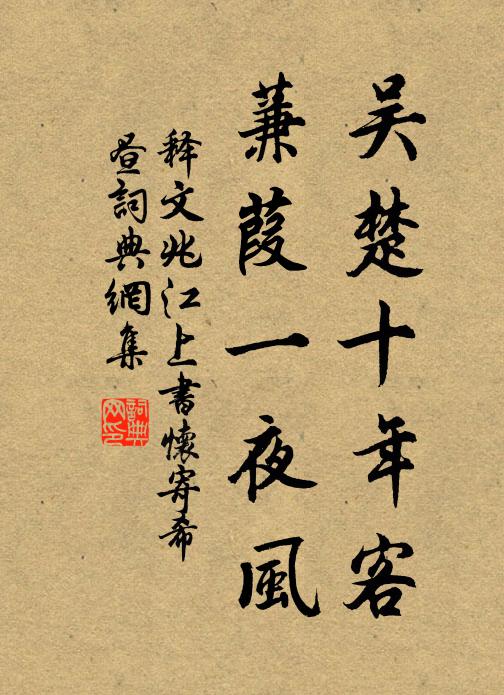 吴楚十年客
蒹葭一夜風
释文兆江上書懷寄希
昼詞典網集
詞典
网印